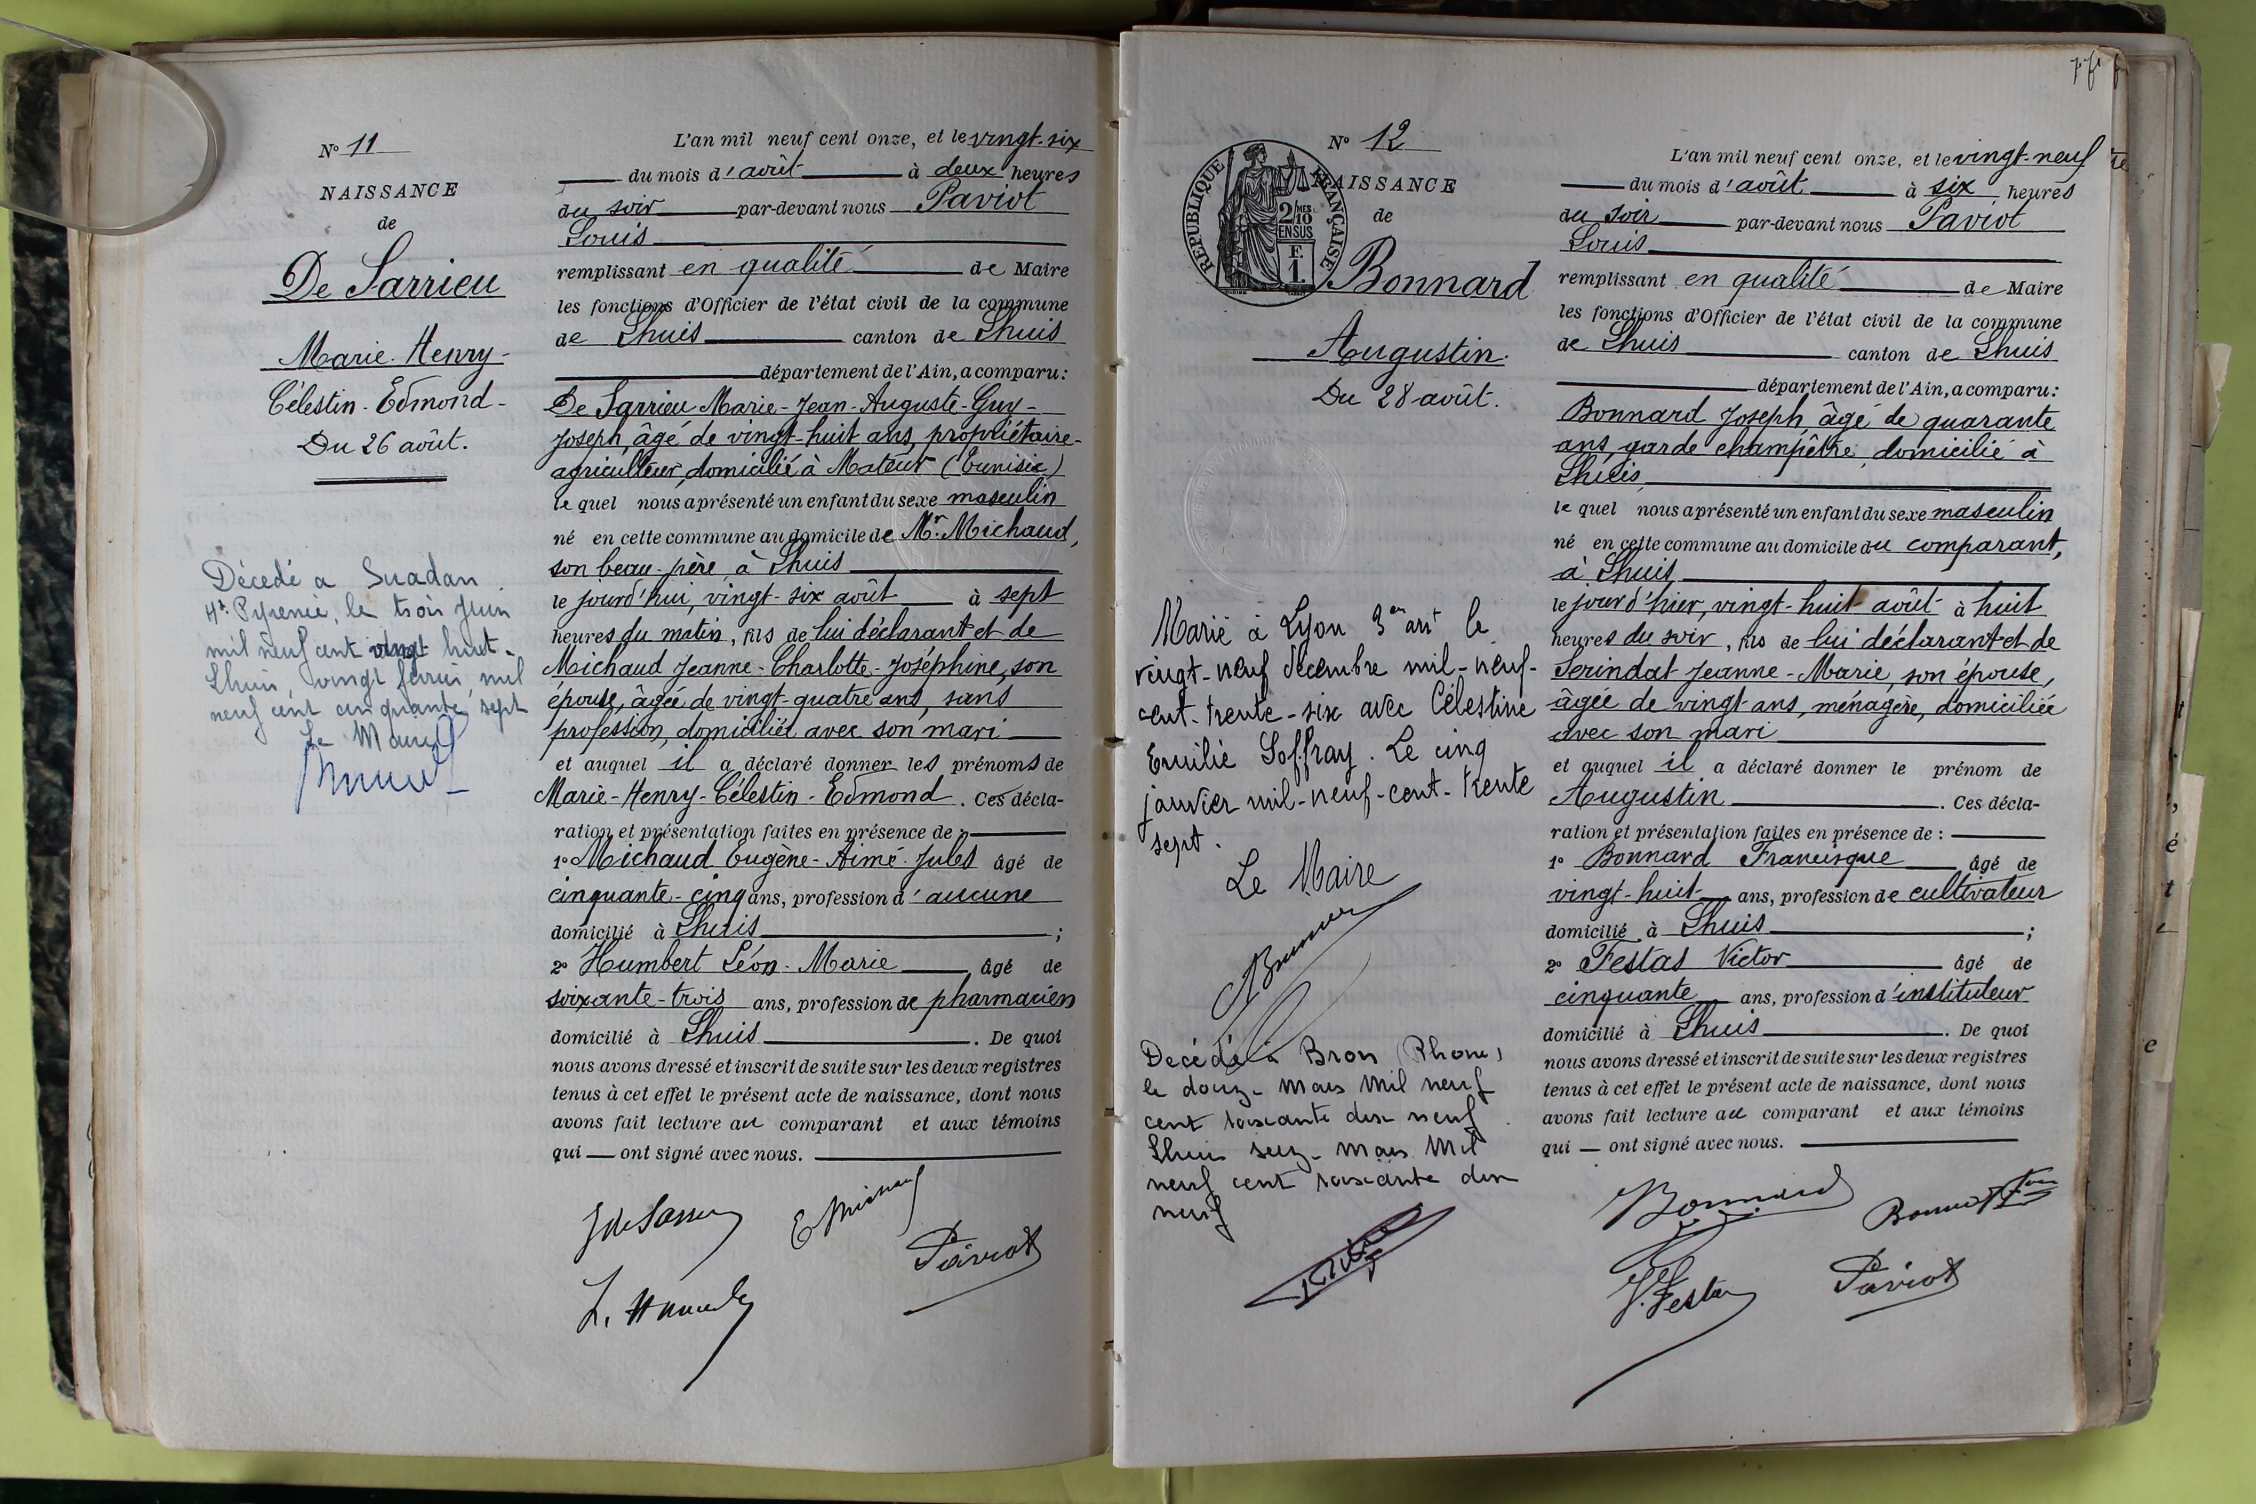 N° 11
NAISSANCE
de
De Sarrieu
Marie-Henry-
Célestin-Edmond-
Du 26 août.
Décédé a Suadan
Hte Pyrenée, le trois Juin
mil neuf cent vingt huit-
Lhuis, vingt février mil
neuf cent cinquante sept
Le Maire
L'an mil neuf cent onze, et le vingt-six
du mois d'août à deux heures
du soir par-devant nous Paviot
Louis
remplissant en qualité de Maire
les fonctions d'Officier de l'état civil de la commune
de Lhuis canton de Lhuis
département de l'Ain, a comparu:
De Sarrieu Marie-Jean-Auguste-Guy-
Joseph, âgé de vingt-huit ans, propriétaire-
agriculteur, domicilié à Mateur (Tunisie)
lequel nous a présenté un enfant du sexe masculin
né en cette commune au domicile de Mr. Michaud,
son beau-père, à Lhuis
le jourd'hui, vingt-six août à sept
heures du matin, fils de lui déclarant et de
Michaud Jeanne-Charlotte-Joséphine, son
épouse, âgée de vingt-quatre ans, sans
profession, domiciliée avec son mari
et auquel il a déclaré donner les prénoms de
Marie-Henry-Célestin-Edmond. Ces décla-
ration et présentation faites en présence de:
1° Michaud Eugène-Aimé-Jules âgé de
cinquante-cinq ans, profession d'aucune
domicilié à Lhuis ;
2° Humbert Léon-Marie âgé de
soixante-trois ans, profession de pharmacien
domicilié à Lhuis. De quoi
nous avons dressé et inscrit de suite sur les deux registres
tenus à cet effet le présent acte de naissance, dont nous
avons fait lecture au comparant et aux témoins
qui — ont signé avec nous.
Paviot
N° 12
NAISSANCE
de
RÉPUBLIQUE FRANÇAISE
2/10 MES
EN SUS
F.
1.
Bonnard
Augustin.
Du 28 août.
Marié à Lyon 3em arrt le
vingt-neuf décembre mil-neuf-
cent-trente-six avec Célestine
Emilie Soffray. Le cinq
janvier mil-neuf-cent-trente
sept.
Le Maire
Décédé à Bron (Rhone)
le douze Mars Mil neuf
cent soixante dix neuf
Lhuis seize Mars Mil
neuf cent soixante dix
neuf
L'an mil neuf cent onze, et le vingt-neuf
du mois d'août à six heures
du soir par-devant nous Paviot
Louis
remplissant en qualité de Maire
les fonctions d'Officier de l'état civil de la commune
de Lhuis canton de Lhuis
département de l'Ain, a comparu:
Bonnard Joseph, âgé de quarante
ans, garde champêtre, domicilié à
Lhuis
lequel nous a présenté un enfant du sexe masculin
né en cette commune au domicile du comparant,
à Lhuis
le jour d'hier, vingt-huit août à huit
heures du soir, fils de lui déclarant et de
Serindat Jeanne-Marie, son épouse,
âgée de vingt ans, ménagère, domiciliée
avec son mari
et auquel il a déclaré donner le prénom de
Augustin. Ces décla-
ration et présentation faites en présence de :
1° Bonnard Francisque âgé de
vingt-huit ans, profession de cultivateur
domicilié à Lhuis ;
2° Festas Victor âgé de
cinquante ans, profession d'instituteur
domicilié à Lhuis. De quoi
nous avons dressé et inscrit de suite sur les deux registres
tenus à cet effet le présent acte de naissance, dont nous
avons fait lecture au comparant et aux témoins
qui — ont signé avec nous.
Bonnard
V. Festas
Paviot